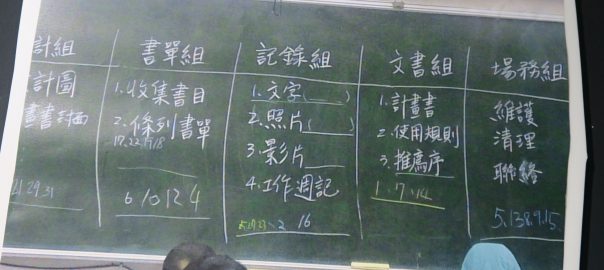 計組
計圖
畫書
29.31
書單組
1.收集書目
2.條列書單
17.22.19.18
6 10 12 4
記錄組
1.文字(  )
2.照片(  )
3.影片
4.工作週記
2 16
文書組
1.計畫書
2.使用規則
3.推薦序
1.17.14
場務組
維護
清理
聯絡
5.13.8.9.15.